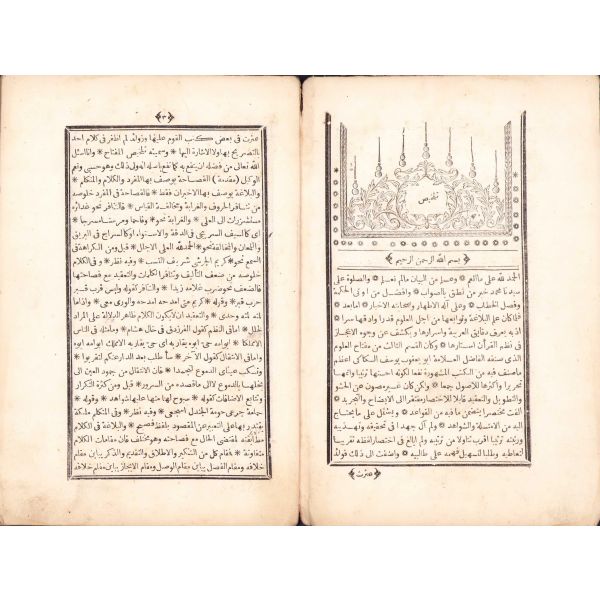 تلخيص
بسم الله الرحمن الرحيم
الحمد لله على ما انعم ۞ وعلم من البيان مالم نعلم ۞ والصلوة على
سيدنا محمد خير من نطق بالصواب ۞ وافضل من اوتى الحكمة
وفصل الخطاب ۞ وعلى آله الاطهار وصحابته الاخيار ۞ امابعد ۞
فلما كان علم البلاغة وتوابعها من اجل العلوم قدرا وادقها سرا ۞
اذ به يعرف دقايق العربية واسرارها ۞ ويكشف عن وجوه الاعجاز
فى نظم القرآن استارها ۞ وكان القسم الثالث من مفتاح العلوم
الذى صنفه الفاضل العلامة ابو يعقوب يوسف السكاكى اعظم
ما صنف فيه من الكتب المشهورة نفعا لكونه احسنها ترتيبا واتمها
تحريرا واكثرها للاصول جمعا ۞ ولكن كان غير مصون عن الحشو
والتطويل والتعقيد قابلا للاختصار مفتقرا الى الايضاح والتجريد ۞
الفت مختصرا يتضمن ما فيه من القواعد ۞ ويشتمل على مايحتاج
اليه من الامثلة والشواهد ۞ ولم آل جهدا فى تحقيقه وتهذيبه
ورتبته ترتيبا اقرب تناولا من ترتيبه ولم ابالغ فى اختصار لفظه تقريبا
لتعاطيه وطلبا لتسهيل فهمه على طالبيه ۞ واضفت الى ذلك فوائد
عثرت
٣
عثرت فى بعض كتب القوم عليها وزوائد لم اظفر فى كلام احد
بالتصريح بها ولا الاشارة اليها ۞ وسميته تلخيص المفتاح ۞ وانا اسئل
الله تعالى من فضله ان ينفع به كما نفع باصله انه ولى ذلك وهو حسبى ونعم
الوكيل (مقدمة) الفصاحة يوصف بها المفرد والكلام والمتكلم ۞
والبلاغة يوصف بها الاخيران فقط ۞ فالفصاحة فى المفرد خلوصه
من تنافر الحروف والغرابة ومخالفة القياس ۞ فالتنافر نحو غدائره
مستشزرات الى العلى ۞ والغرابة نحو ۞ وفاحما ومرسنا مسرجا ۞
اى كالسيف السريجى فى الدقة والاستواء او كالسراج فى البريق
واللمعان والمخالفة نحو ۞ الحمد لله العلى الاجلل ۞ قيل ومن الكراهة فى
السمع نحو ۞ كريم الجرشى شريف النسب ۞ وفيه نظر ۞ وفى الكلام
خلوصه من ضعف التأليف وتنافر الكلمات والتعقيد مع فصاحتها
فالضعف نحو ضرب غلامه زيدا ۞ والتنافر كقوله وليس قرب قبر
حرب قبر ۞ وقوله ۞ كريم متى امدحه امدحه والورى معى ۞ واذا ما
لمته لمته وحدى ۞ والتعقيد ان لايكون الكلام ظاهر الدلالة على المراد
لخلل اما فى النظم كقول الفرزدق فى خال هشام ۞ ومامثله فى الناس
الا مملكا ۞ ابو امه حى ابوه يقاربه اى حى يقاربه الا مملك ابو امه ابوه
واما فى الانتقال كقول الآخر ۞ سأطلب بعد الدار عنكم لتقربوا ۞
وتسكب عيناى الدموع لتجمدا ۞ فان الانتقال من جمود العين الى
بخلها بالدموع لا الى ماقصده من السرور ۞ قيل ومن كثرة التكرار
وتتابع الاضافات كقوله ۞ سبوح لها منها عليها شواهد ۞ وقوله ۞
حمامة جرعى حومة الجندل اسجعى ۞ وفيه نظر ۞ وفى المتكلم ملكة
يقتدر بها على التعبير عن المقصود بلفظ فصيح ۞ والبلاغة فى الكلام
مطابقته لمقتضى الحال مع فصاحته وهو مختلف فان مقامات الكلام
متفاوتة ۞ فمقام كل من التنكير والاطلاق والتقديم والذكر يباين مقام
خلافه ومقام الفصل يباين مقام الوصل ومقام الايجاز يباين مقام خلافه